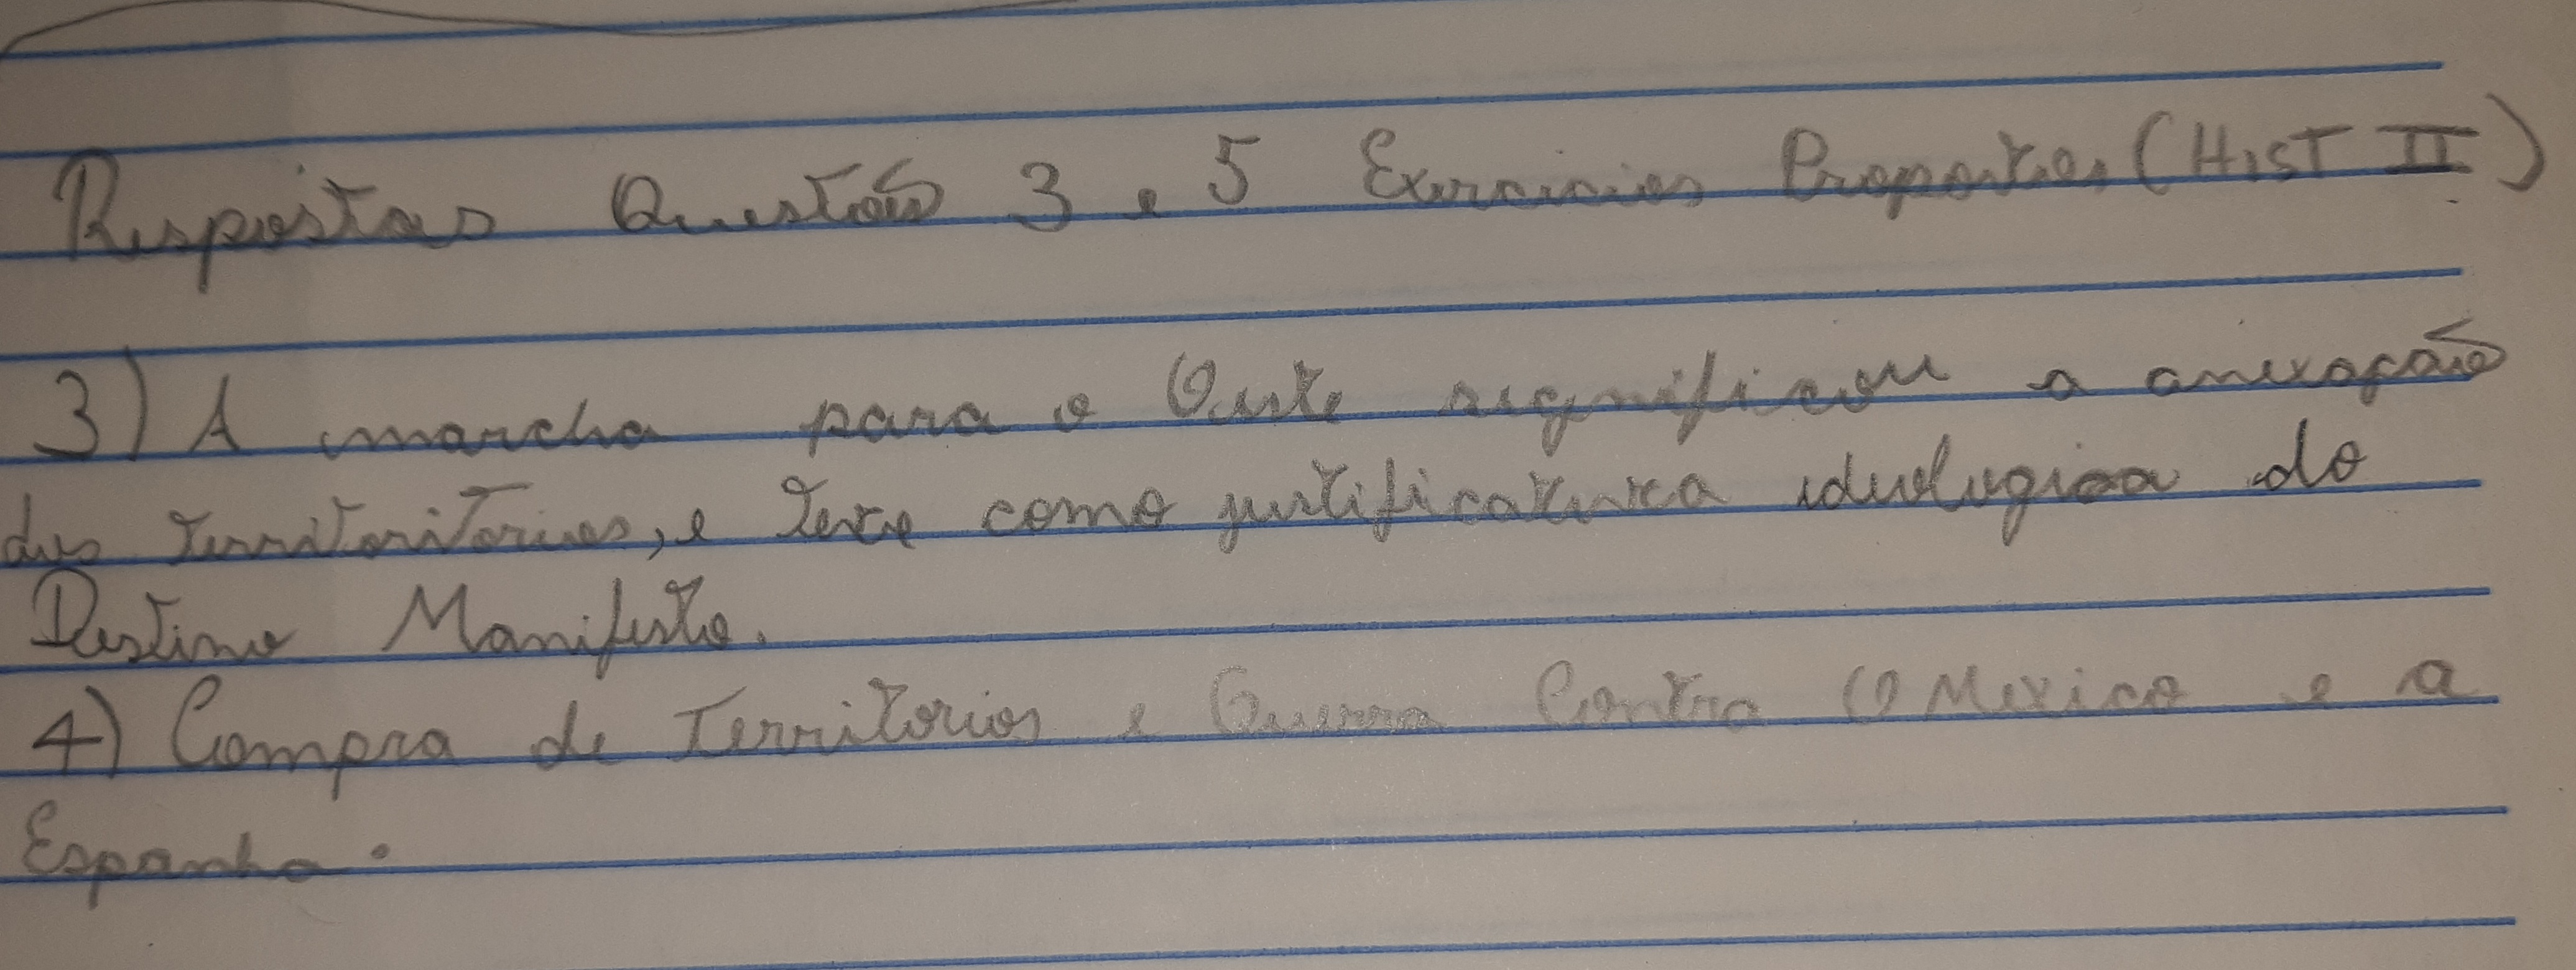 Respostas Questão 3 e 5 Exercicios Propostos (HIST II)
3) A marcha para o Oeste significou a anexação
dos territoritorios, e teve como justificativa ideologica do
Destino Manifesto.
4) Compra de Territorios e Guerra Contra O Mexico e a
Espanha.